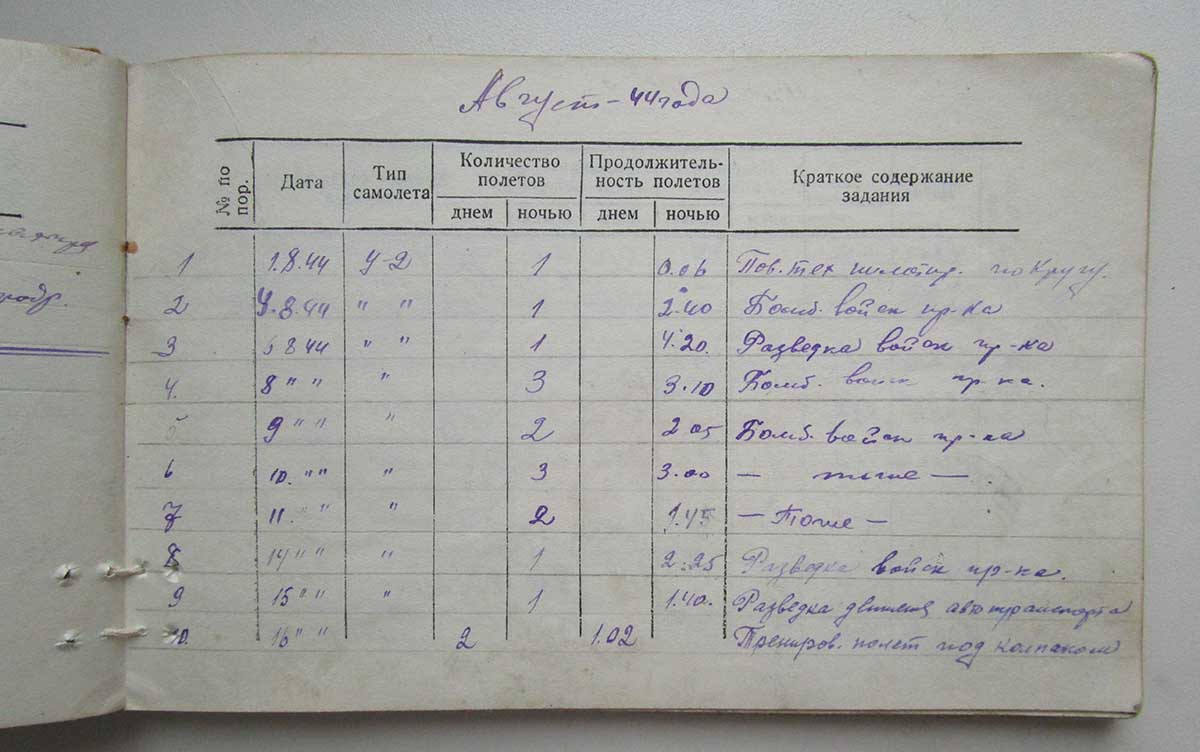 Август - 44 года
№ по пор. Дата Тип самолета Количество полетов Продолжитель-ность полетов Краткое содержание задания
днем ночью днем ночью
1 1.8.44 У-2 1 0.06 Пов. тех пилотир. по Кругу.
2 4.8.44 " " 1 2.40 Бомб. войск пр-ка
3 5 8 44 " " 1 4.20. Разведка войск пр-ка
4. 8 " " " 3 3.10 Бомб. войск пр-ка.
5 9 " " " 2 2 05 Бомб. войск пр-ка
6 10. " " " 3 3.00 — тоже —
7 11. " " 2 1.45 — Тоже —
8 14 " " " 1 2.25 Разведка войск пр-ка.
9 15 " " " 1 1.40. Разведка движения автотранспорта
10. 16 " " 2 1.02 Трениров. полет под колпаком